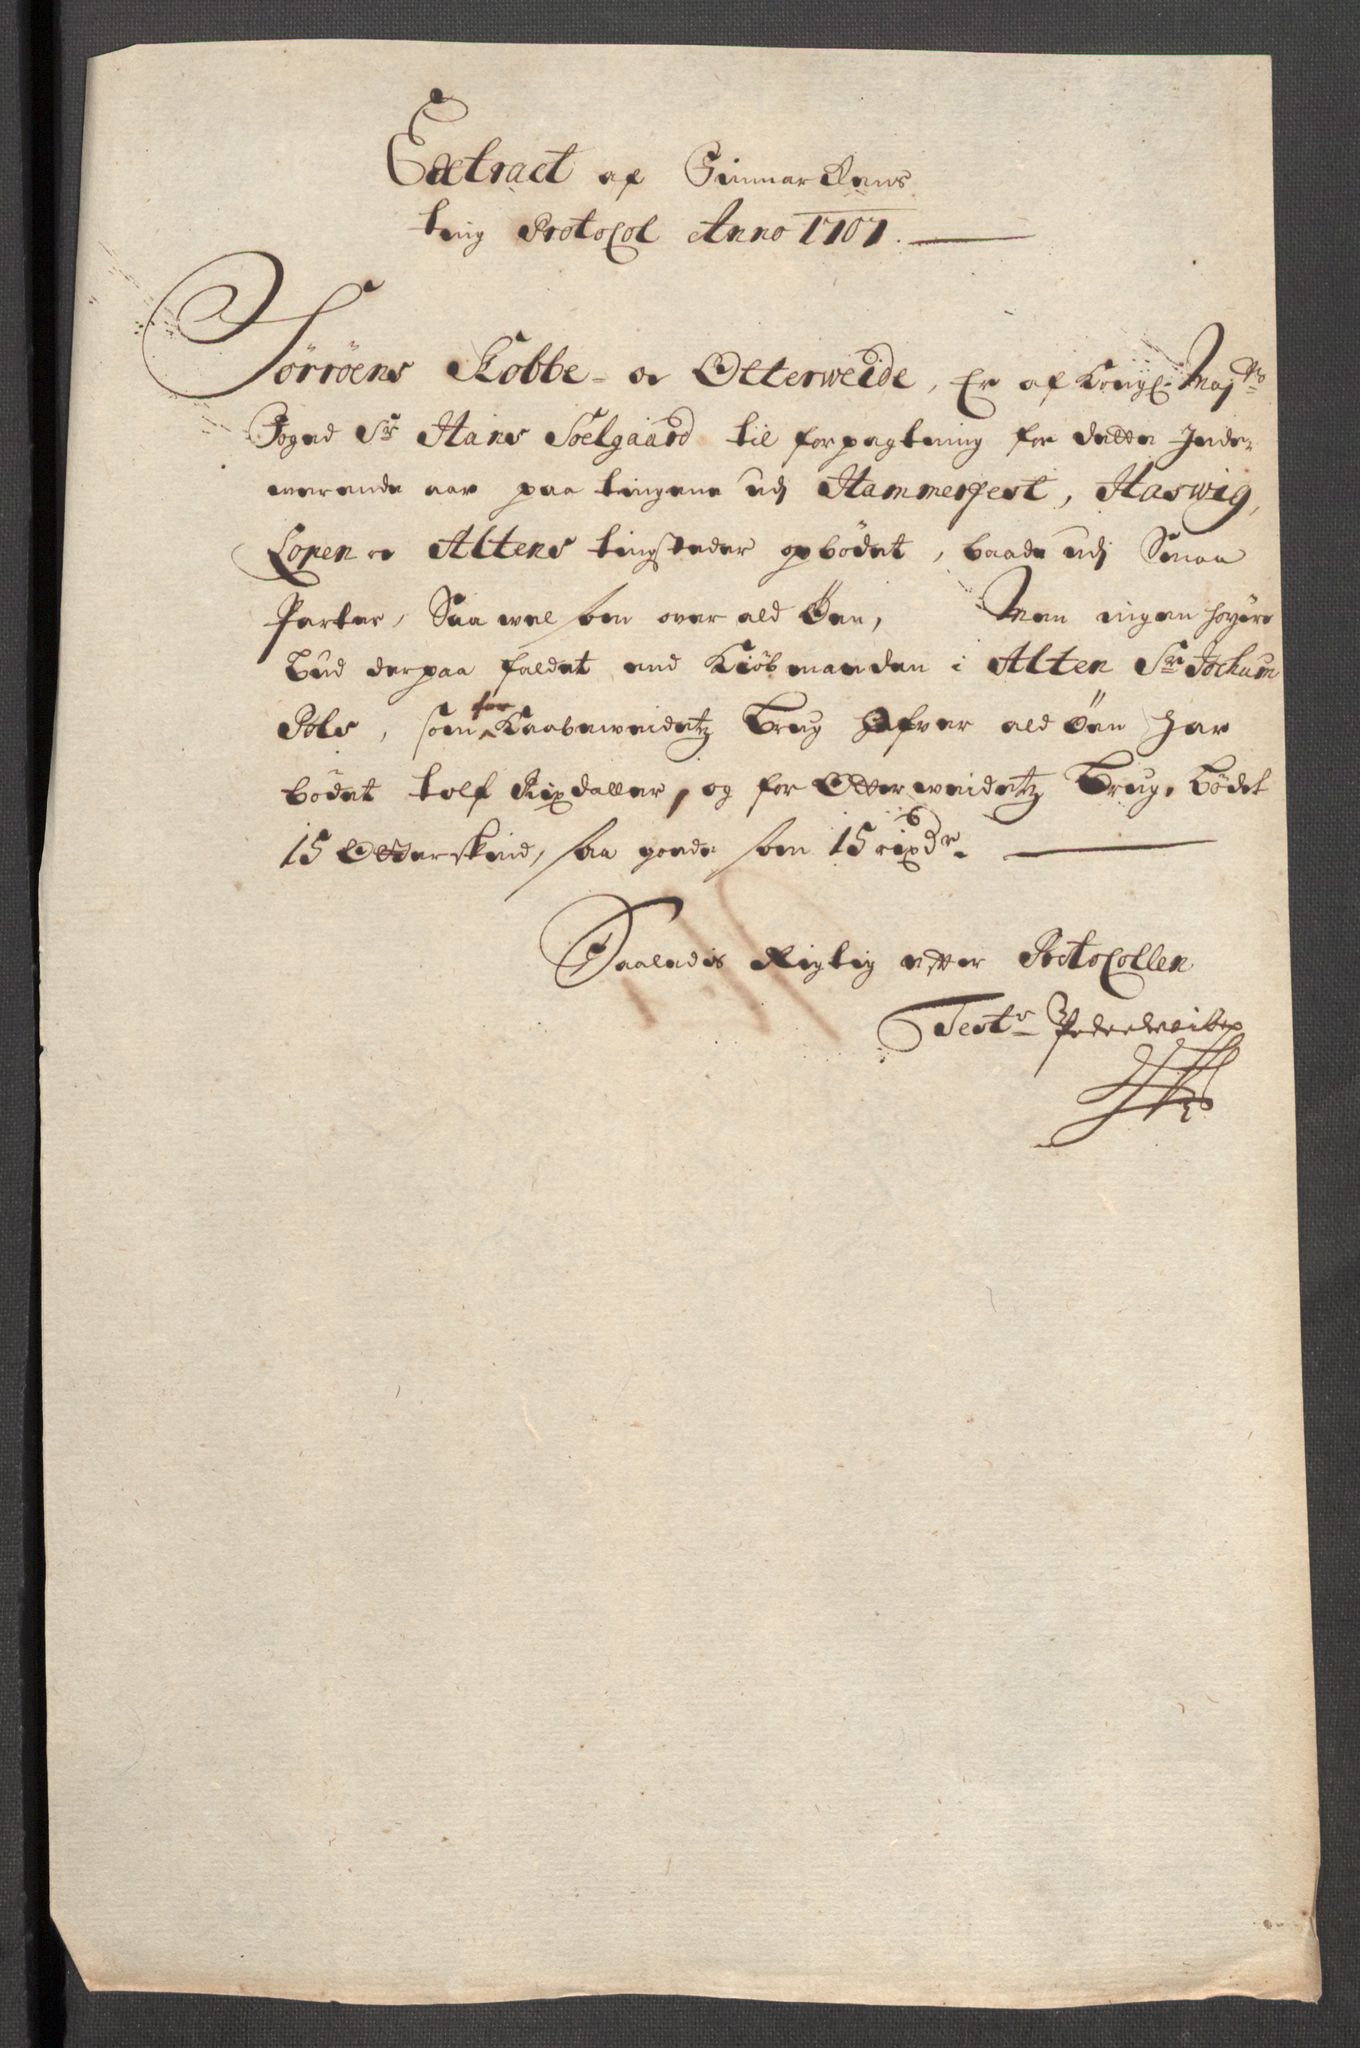 Extract af Finmarkens
ting Protocol Anno 1707.
Sörröens Kobbe- oc Otterweide, Er af Kongl: Maj:ts
Foged Sr Hans Soelgaard til forpagtning for dette Inde-
werende aar paa tingene udj Hammerfest, Haswig,
Loppen oc Altens tingsteder opbödet, baade udj Smaa
Parter, Saa wel som over ald Öen, Men ingen höyere
bud derpaa faldet end Kiöbmanden i Alten Sr Jochum
Pols, som for Kaabeweidetz brug ofver ald Öen har
bödet tolf Rixdaller, og for Otterweidetz brug, bödet
15 Otterskind, saa goede som 15 rixdr.
Saaledis Rigtig efter Protocollen
Test:r